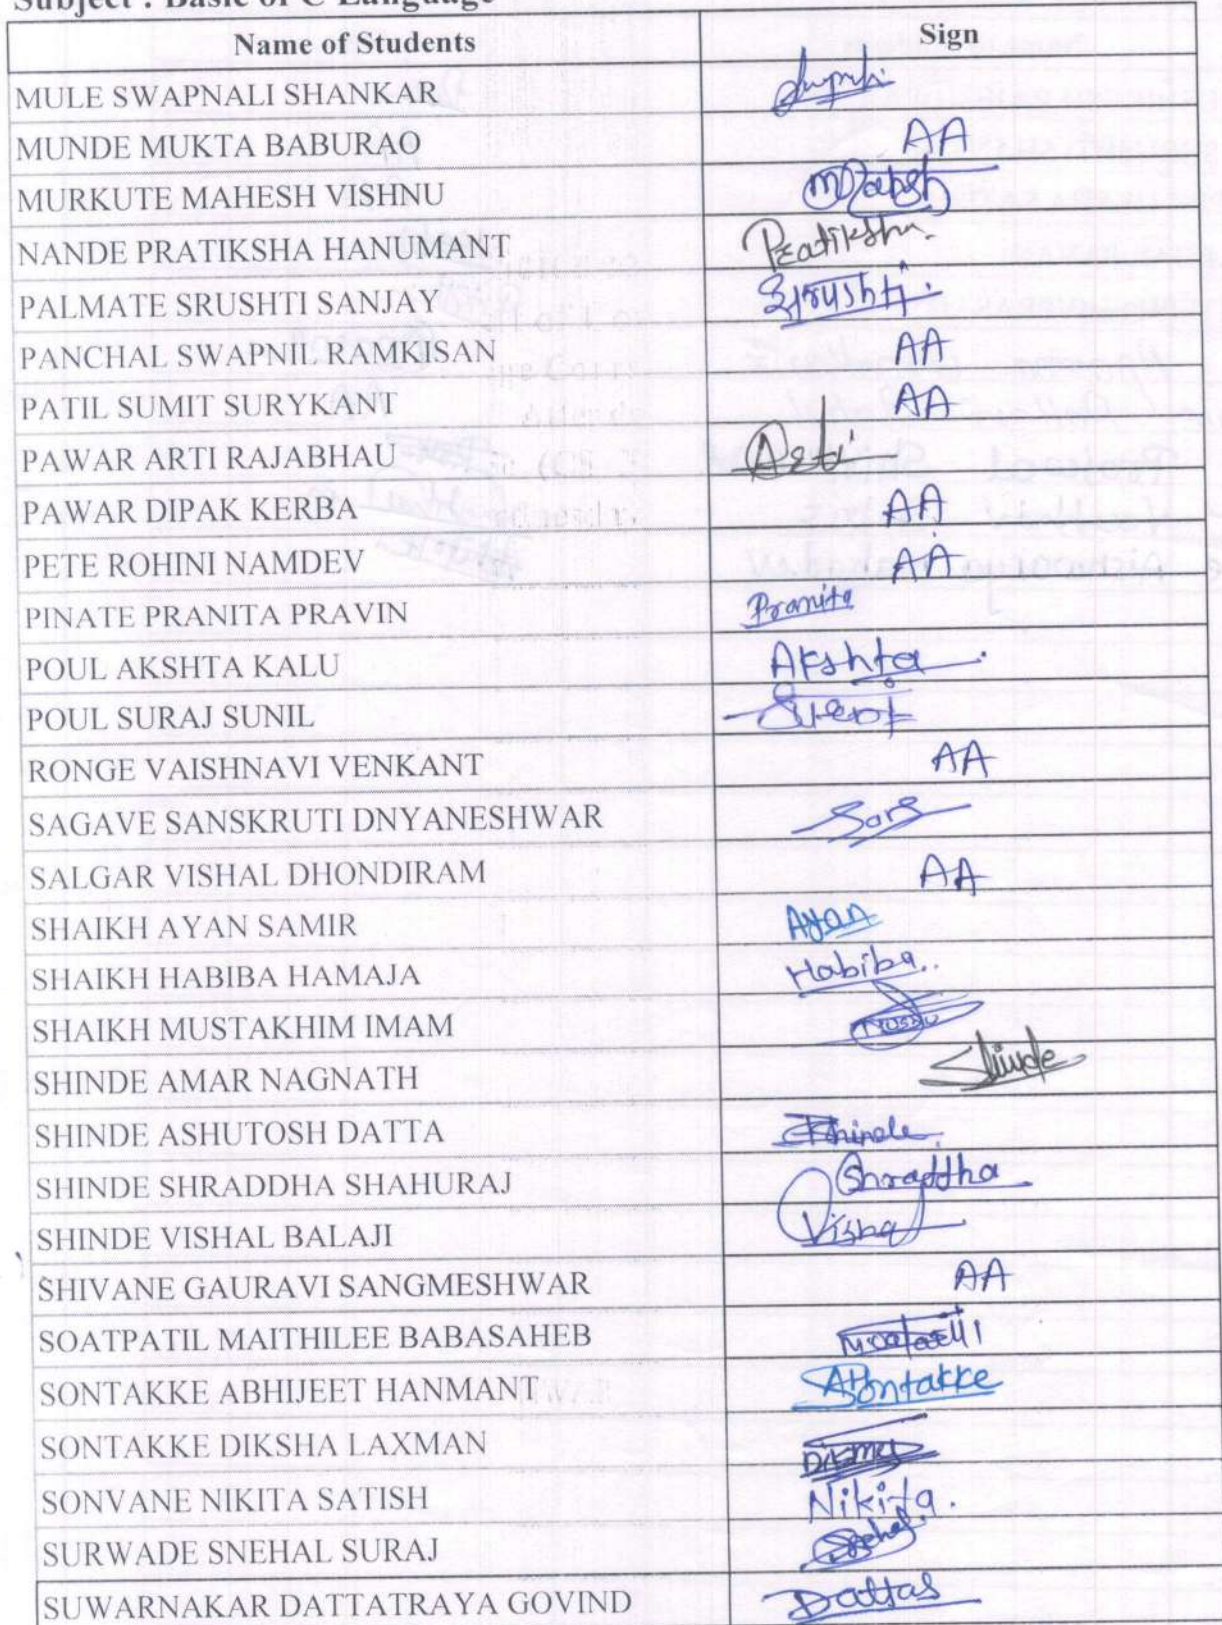 Subject : Basic of C Language
Name of Students Sign
MULE SWAPNALI SHANKAR
MUNDE MUKTA BABURAO AA
MURKUTE MAHESH VISHNU Mahesh
NANDE PRATIKSHA HANUMANT Pratiksha.
PALMATE SRUSHTI SANJAY Srushti.
PANCHAL SWAPNIL RAMKISAN AA
PATIL SUMIT SURYKANT AA
PAWAR ARTI RAJABHAU Arti
PAWAR DIPAK KERBA AA
PETE ROHINI NAMDEV AA
PINATE PRANITA PRAVIN Pranita
POUL AKSHTA KALU Akshta.
POUL SURAJ SUNIL Suraj
RONGE VAISHNAVI VENKANT AA
SAGAVE SANSKRUTI DNYANESHWAR
SALGAR VISHAL DHONDIRAM AA
SHAIKH AYAN SAMIR Ayan
SHAIKH HABIBA HAMAJA Habiba..
SHAIKH MUSTAKHIM IMAM
SHINDE AMAR NAGNATH Shinde
SHINDE ASHUTOSH DATTA Shinde.
SHINDE SHRADDHA SHAHURAJ Shraddha
SHINDE VISHAL BALAJI Vishal
SHIVANE GAURAVI SANGMESHWAR AA
SOATPATIL MAITHILEE BABASAHEB
SONTAKKE ABHIJEET HANMANT ASontakke
SONTAKKE DIKSHA LAXMAN
SONVANE NIKITA SATISH Nikita.
SURWADE SNEHAL SURAJ Snehal
SUWARNAKAR DATTATRAYA GOVIND Dattas